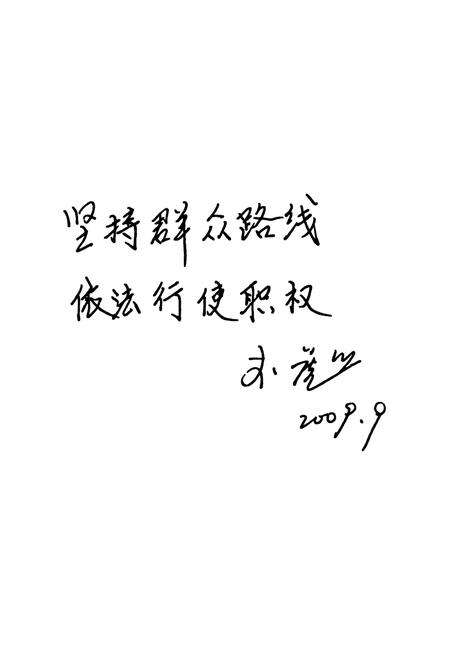 坚持群众路线
依法行使职权
2009.9